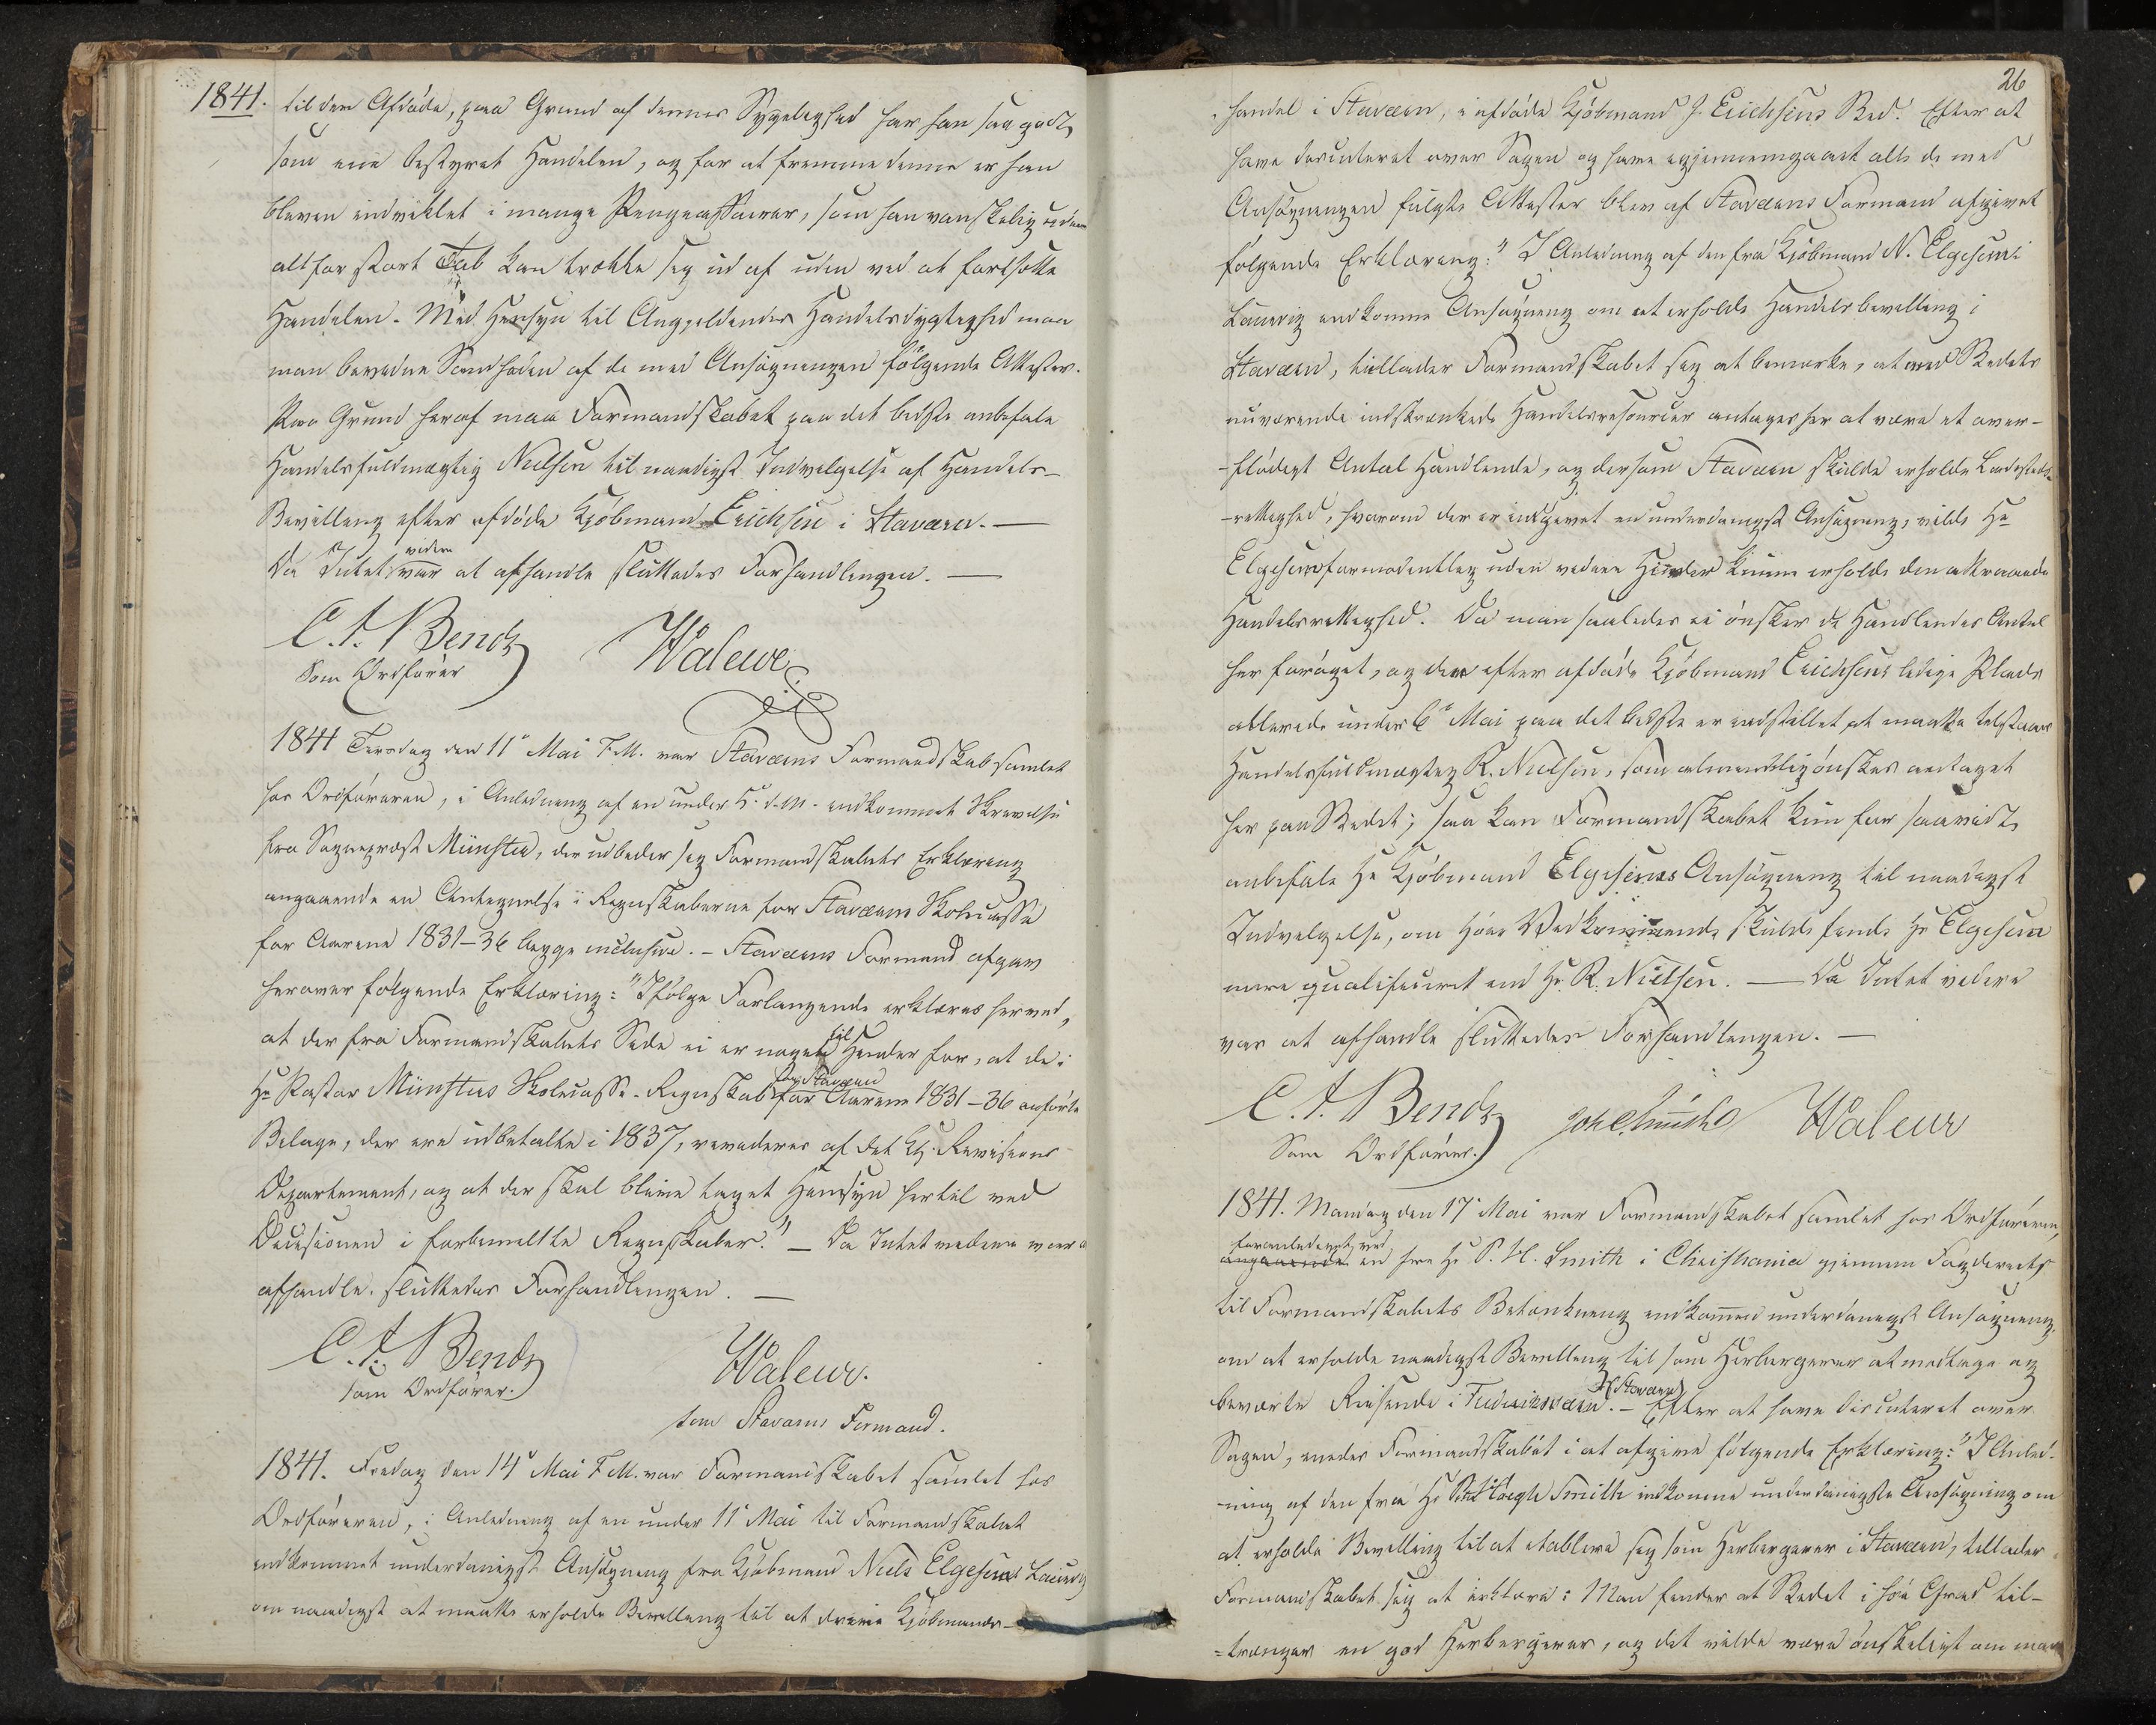 1841. til den Afdöde, paa Grund af dennes Sygelighed har han saa godt
som ene bestyret Handelen, og for at fremme denne er han
bleven indviklet i mange Pengeaffairer, som han vanskelig uden
altfor stort Tab kan trække sig ud af uden ved at fortsætte
Handelen. Med Hensyn til Angjeldendes Handelsdygtighed maa
man bevidne Sandheden af de med Ansögningen fölgende Attester.
Paa Grund heraf maa Formandskabet paa det bedste anbefale
Handelsfuldmægtig Nielsen til naadigst Indvilgelse af Handels-
Bevilling efter afdöde Kjöbmand Erichsen i Staværn. —
Da Intet videre var at afhandle sluttedes Forhandlingen. —
C. A. Bentz Waleur
Som Ordförer
1841 Tirsdag den 11te Mai F.M. var Staværns Formandskab samlet
hos Ordföreren, i Anledning af en under 5te d.M. indkommet Skrivelse
fra Sogneprest Münster, der udbeder sig Formandskabets Erklæring
angaaende en Antegnelse i Regnskaberne for Staværns Skolecasse
for Aarene 1831-36 begge inclusive. - Staværns Formænd afgav
herover fölgende Erklæring: "Ifölge Forlangende erklæres herved,
at der fra Formandskabets Side ei er noget til Hinder for, at de i
Hr Pastor Münsters Skolecasse-Regnskab for Staværn for Aarene 1831-36 anförte
Bilage, der ere udbetalte i 1837, revideres af det Kgl. Revisions
Departement, og at der skal blive taget Hensyn hertil ved
Decisionen i forbemeldte Regnskaber." — Da Intet videre var a
afhandle, sluttedes Forhandlingen. —
C. A. Bentz Waleur.
som Ordförer. som Staværns Formand.
1841. Fredag den 14de Mai F.M. var Formandskabet samlet hos
Ordföreren, i Anledning af en under 11te Mai til Formandskabet
indkommet underdanigst Ansögning fra Kjöbmand Niels Elgesem i Laurvig
om naadigst at maatte erholde Bevilling til at drive Kjöbmands-
26
handel i Staværn, i afdöde Kjöbmand J. Erichsens Sted. Efter at
have discuteret over Sagen og have igjennemgaaet alle de med
Ansögningen fulgte Attester blev af Staværns Formænd afgivet
fölgende Erklæring: "I Anledning af den fra Kjöbmand N. Elgesem i
Laurvig indkomne Ansögning om at erholde Handelsbevilling i
Staværn, tillader Formandskabet sig at bemærke, at med Stedets
nuværende indskrænkede Handelsresourcer antages her at være et over-
-flödigt Antal Handlende, og dersom Staværn skulde erholde Ladesteds
-rettighed, hvorom der er indgivet en underdanigst Ansögning, vilde Hr
Elgesem formodentlig uden videre Hinder kunne erholde den attraaede
Handelsrettighed. Da man saaledes ei önsker de Handlendes Antal
her foröget, og den efter afdöde Kjöbmand Erichsens ledige Plads
allerede under 6te Mai paa det bedste er indstillet at maatte tilstaaes
Handelsfuldmægtig R. Nielsen, som almindelig önskes antaget
her paa Stedet; saa kan Formandskabet kun for saavidt
anbefale Hr Kjöbmand Elgesems Ansögning til naadigst
Indvilgelse, om höie Vedkommende skulde finde Hr Elgesem
mere qualificeret end Hr. R. Nielsen. — Da Intet videre
var at afhandle sluttedes Forhandlingen. —
C. A. Bentz Waleur
Som Ordförer.
1841. Mandag den 17de Mai var Formandskabet samlet hos Ordföreren,
foranlediget ved
angaaende en fra Hr P. H. Smith i Christiania gjennem Fogderiet
til Formandskabets Betænkning indkommen underdanigst Ansögning,
om at erholde naadigst Bevilling til som Herbergerer at modtage og
beværte Reisende i Fredriksværn. (Staværn) — Efter at have discuteret over
Sagen, enedes Formandskabet i at afgive fölgende Erklæring: "I Anled-
-ning af den fra Hr Höegh Smith indkomne underdanigste Ansögning om
at erholde Bevilling til at etablere sig som Herbergerer i Staværn, tillader
Formandskabet sig at erklære: Man finder at Stedet i höi Grad til-
=trænger en god Herbergerer, og det vilde være önskeligt om man